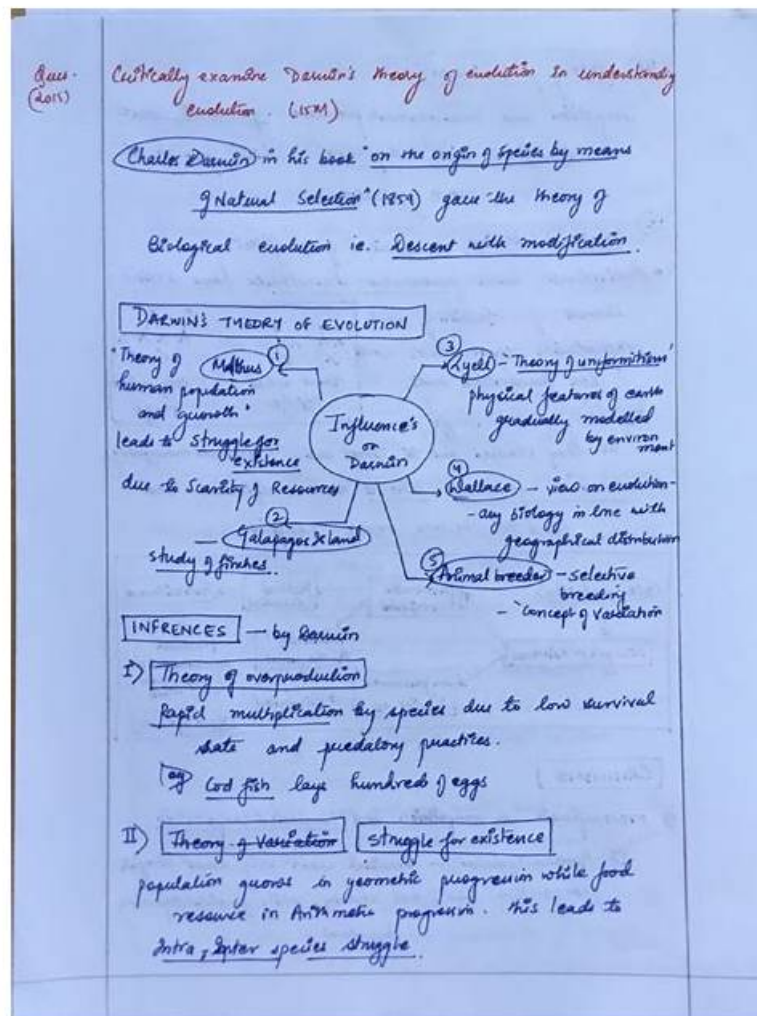 Ques.
(2015)
Critically examine Darwin's theory of evolution in understanding
evolution. (15M)
Charles Darwin in his book "on the origin of species by means
of Natural Selection" (1859) gave the theory of
Biological evolution ie. Descent with modification.
DARWIN'S THEORY OF EVOLUTION
① Malthus
"Theory of
human population
and growth"
leads to struggle for
existence
due to Scarcity of Resources
② Galapagos Island
— study of finches.
Influence's
on
Darwin
③ Lyell - 'Theory of uniformitism'
physical features of earth
gradually modelled
by environment
④ Wallace — view on evolution-
-ary biology in line with
geographical distribution
⑤ Animal breeder — selective
breeding
- 'Concept of variation
INFRENCES — by Darwin
I) Theory of overproduction
Rapid multiplication by species due to low survival
rate and predatory practices.
eg Cod fish lays hundred of eggs
II) Theory of Variation struggle for existence
population grows in geometric progression while food
resource in Arithmetic progression. this leads to
Intra, Inter species struggle.